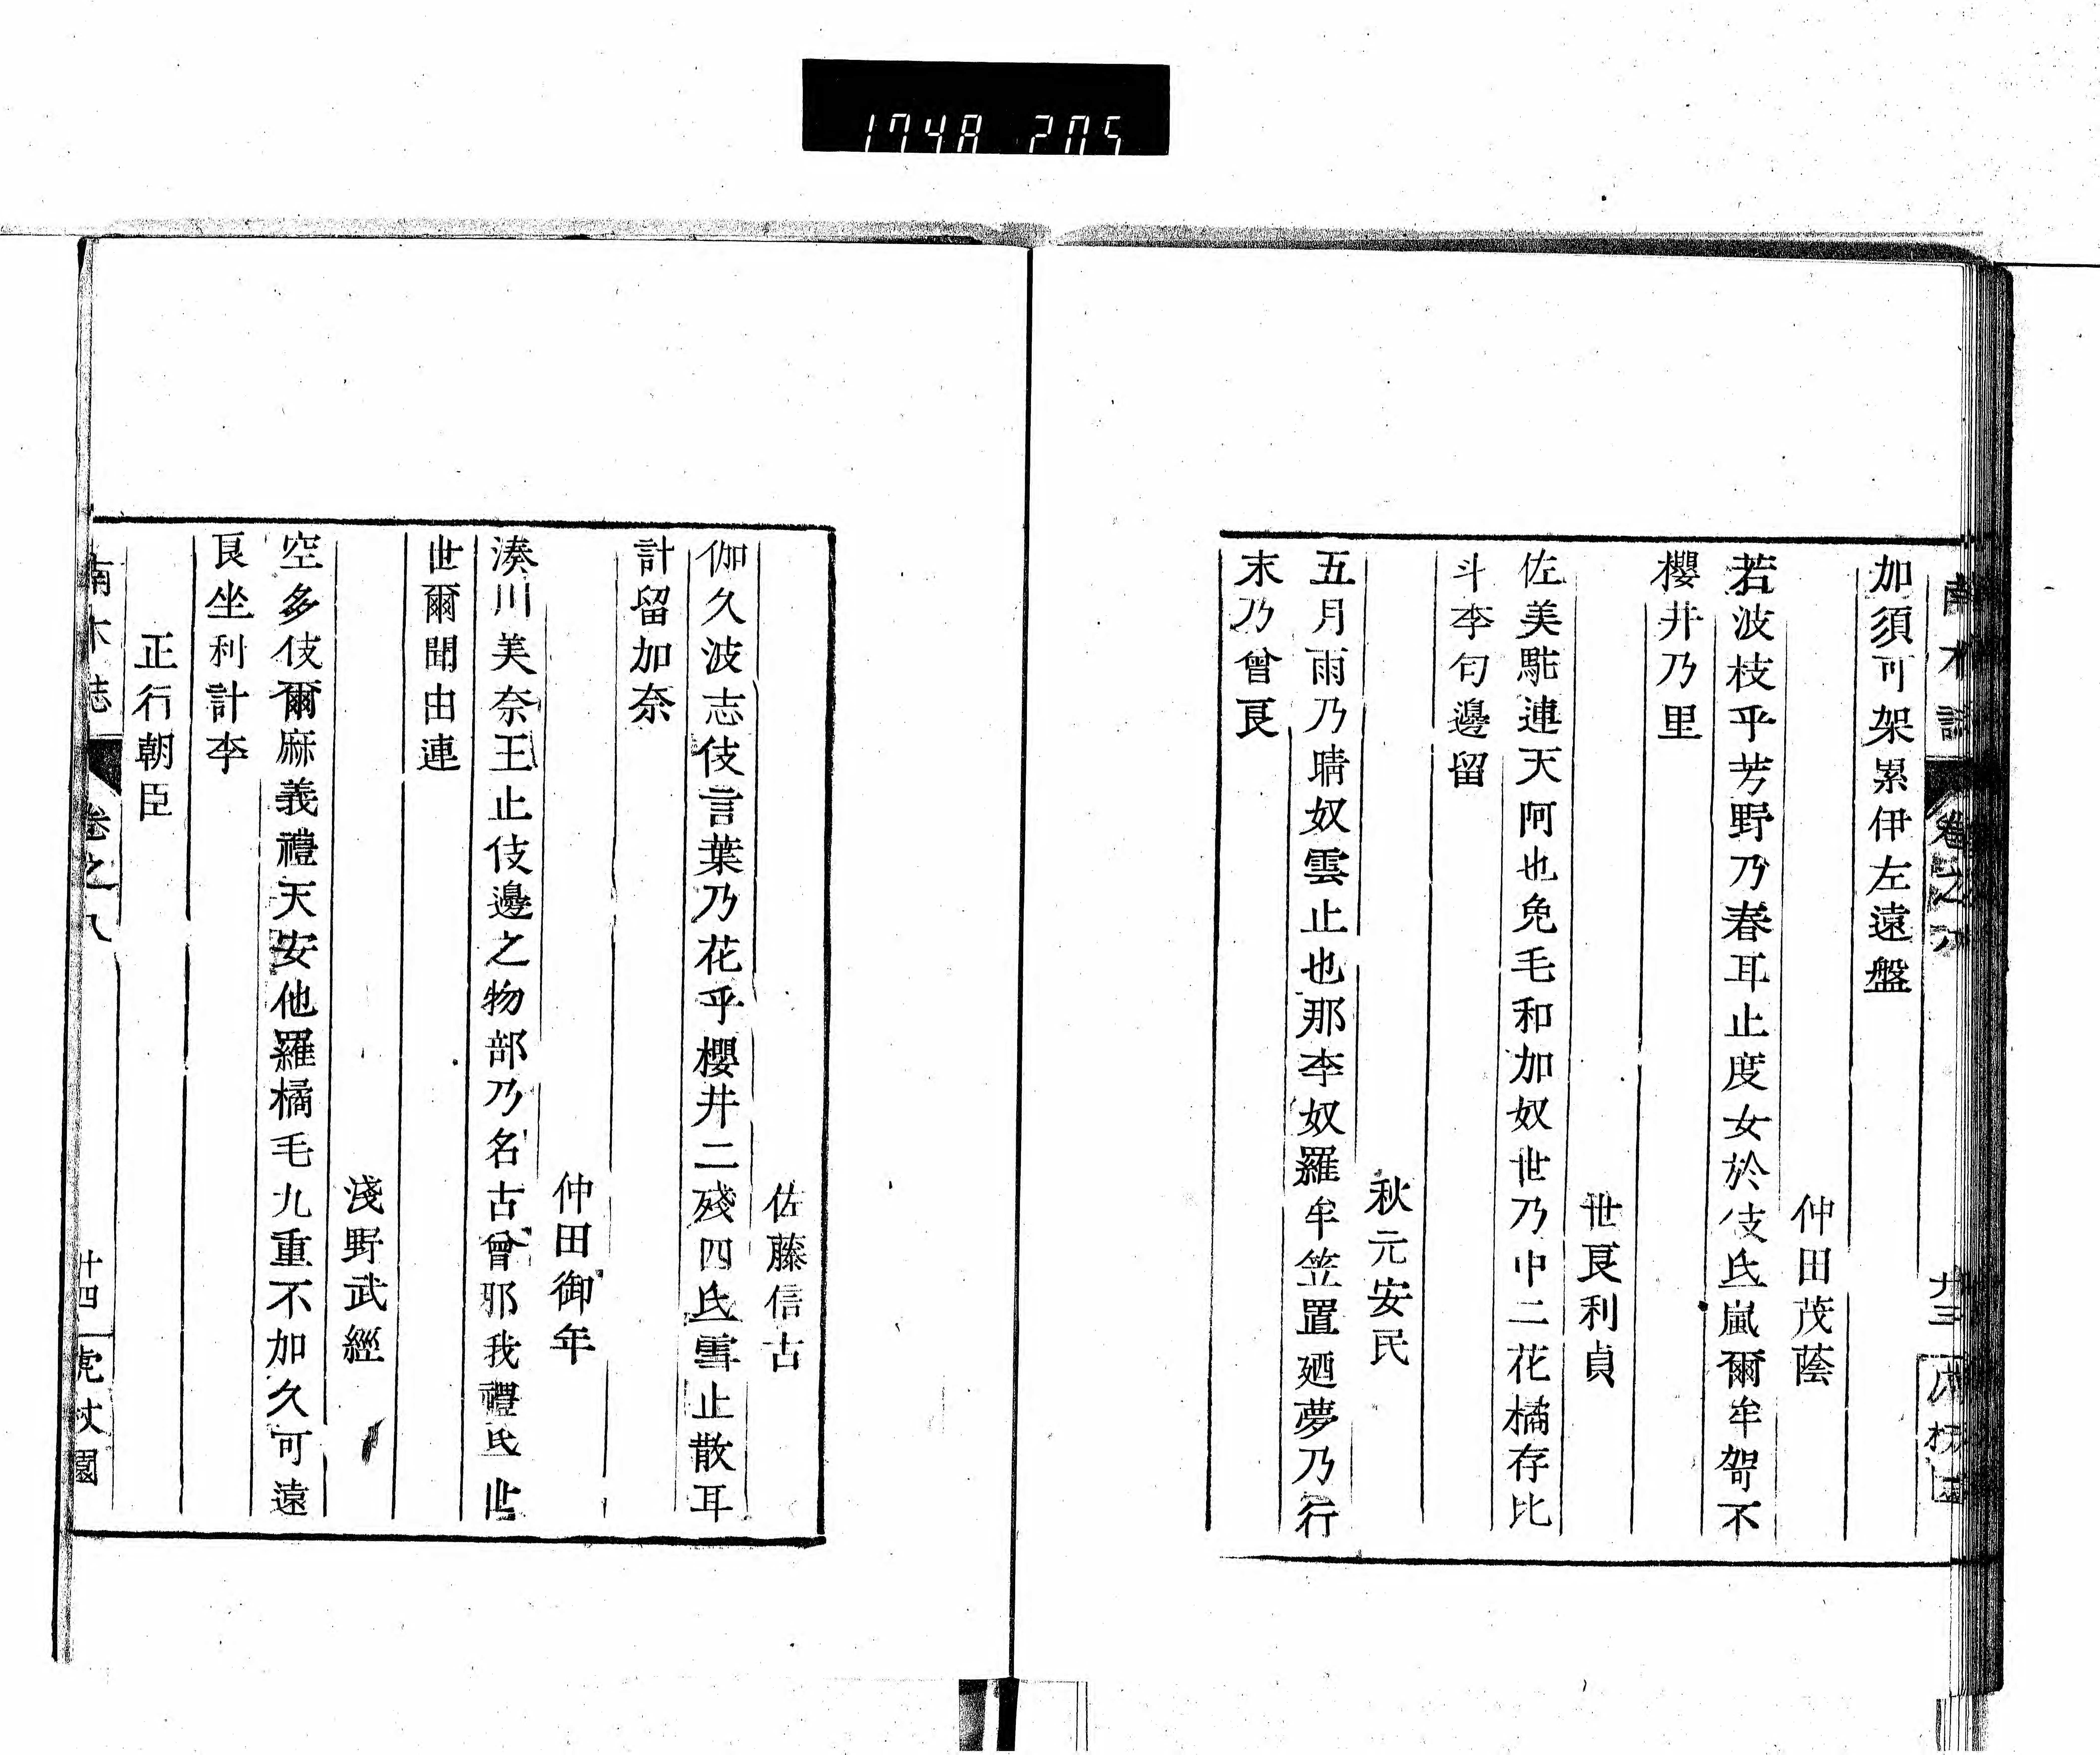 1748 205
南木誌
卷之八
廿三
加須可架累伊左遠盤
仲田茂蔭
若波枝乎芳野乃春耳止度女於伎氐嵐爾牟駕不
櫻井乃里
世良利貞
佐美駝連天阿也免毛和加奴世乃中二花橘存比
斗李匂邊留
秋元安民
五月雨乃晴奴雲止也那李奴羅牟笠置廼夢乃行
末乃曾良
佐藤信古
伽久波志伎言葉乃花乎櫻井二殘四氐雪止散耳
計留加奈
仲田御年
湊川美奈王止伎邊之物部乃名古曾邪我禮氐世
世爾聞由連
淺野武經
空多伎爾麻義禮天安他羅橘毛九重不加久可遠
良坐利計李
正行朝臣
南木誌
卷之八
廿四
虎杖園